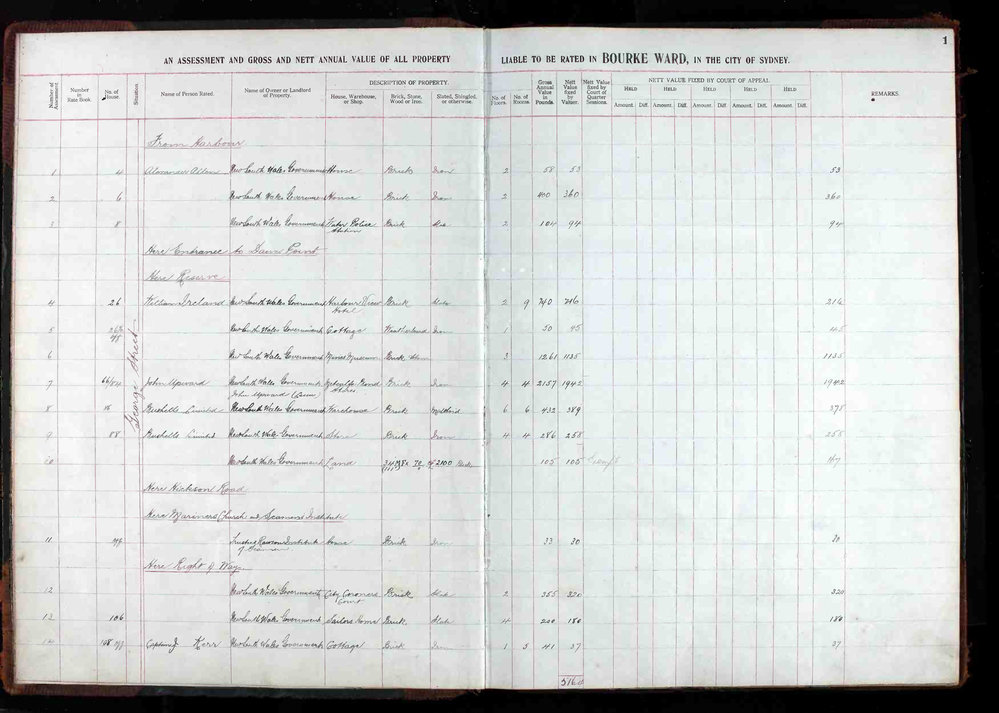 1
AN ASSESSMENT AND GROSS AND NETT ANNUAL VALUE OF ALL PROPERTY LIABLE TO BE RATED IN BOURKE WARD, IN THE CITY OF SYDNEY.
Number of Assessment. Number in Rate Book. No. of House. Situation Name of Person Rated. Name of Owner or Landlord of Property. DESCRIPTION OF PROPERTY. House, Warehouse, or Shop. Brick, Stone, Wood or Iron. Slated, Shingled, or otherwise. No. of Floors. No. of Rooms. Gross Annual Value in Pounds. Nett Value fixed by Valuer. Nett Value fixed by Court of Quarter Sessions. NETT VALUE FIXED BY COURT OF APPEAL. REMARKS.
HELD HELD HELD HELD HELD
Amount. Diff. Amount. Diff. Amount. Diff. Amount. Diff. Amount. Diff.
George Street
From Harbour
1 4 Alexander Allen New South Wales Government House Brick Iron 2 58 53 53
2 6 New South Wales Government House Brick Iron 2 400 360 360
3 8 New South Wales Government Water Police Station Brick Slate 2 104 94 94
Here Entrance to Dawes Point
Here Reserve
4 26 William Ireland New South Wales Government Harbour View Hotel Brick Slate 2 9 240 216 216
5 New South Wales Government Cottage Weatherboard Iron 1 50 45 45
6 New South Wales Government Mines Museum Brick 3 1261 1135 1135
7 66/84 John Upward New South Wales Government Metcalfe Bond Stores Brick Iron 4 4 2157 1942 1942
John Upward
8 Bushells Limited New South Wales Government Warehouse Brick 6 6 432 389 375
9 88 Bushells Limited New South Wales Government Store Brick Iron 4 4 286 258 258
10 New South Wales Government Land 105 105 117
Here Hickson Road
Here Mariners Church and Seamens Institute
11 Trustees Rawson Institute of Seamen House Brick Iron 33 30 30
Here Right of Way
12 New South Wales Government City Coroners Court Brick Slate 2 355 320 320
13 106 New South Wales Government Sailors Home Brick. Slate 4 200 180 180
14 108 Captain J Kerr New South Wales Government Cottage Brick Iron 1 5 41 37 37